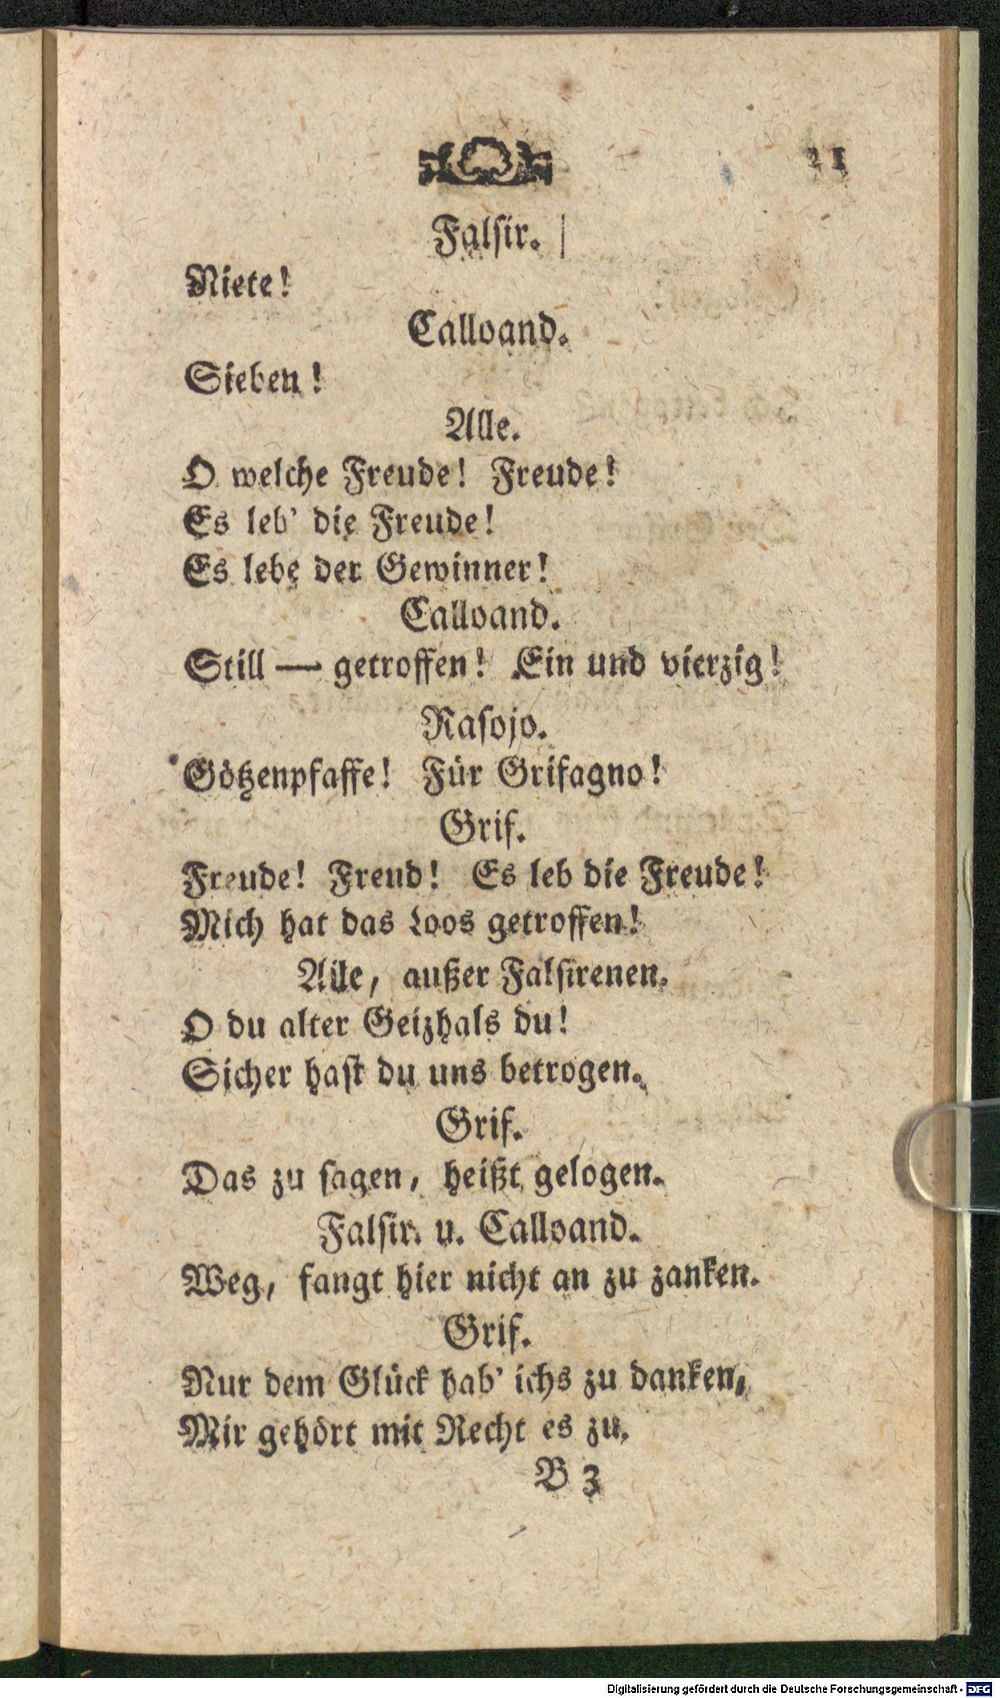 21
Falsir.
Niete!
Calloand.
Sieben!
Alle.
O welche Freude! Freude!
Es leb' die Freude!
Es lebe der Gewinner!
Calloand.
Still — getroffen! Ein und vierzig!
Rasojo.
Götzenpfaffe! Für Grifagno!
Grif.
Freude! Freud! Es leb die Freude!
Mich hat das Loos getroffen!
Alle, außer Falsirenen.
O du alter Geizhals du!
Sicher hast du uns betrogen.
Grif.
Das zu sagen, heißt gelogen.
Falsir. u. Calloand.
Weg, fangt hier nicht an zu zanken.
Grif.
Nur dem Glück hab' ichs zu danken,
Mir gehört mit Recht es zu.
B 3
Digitalisierung gefördert durch die Deutsche Forschungsgemeinschaft - DFG